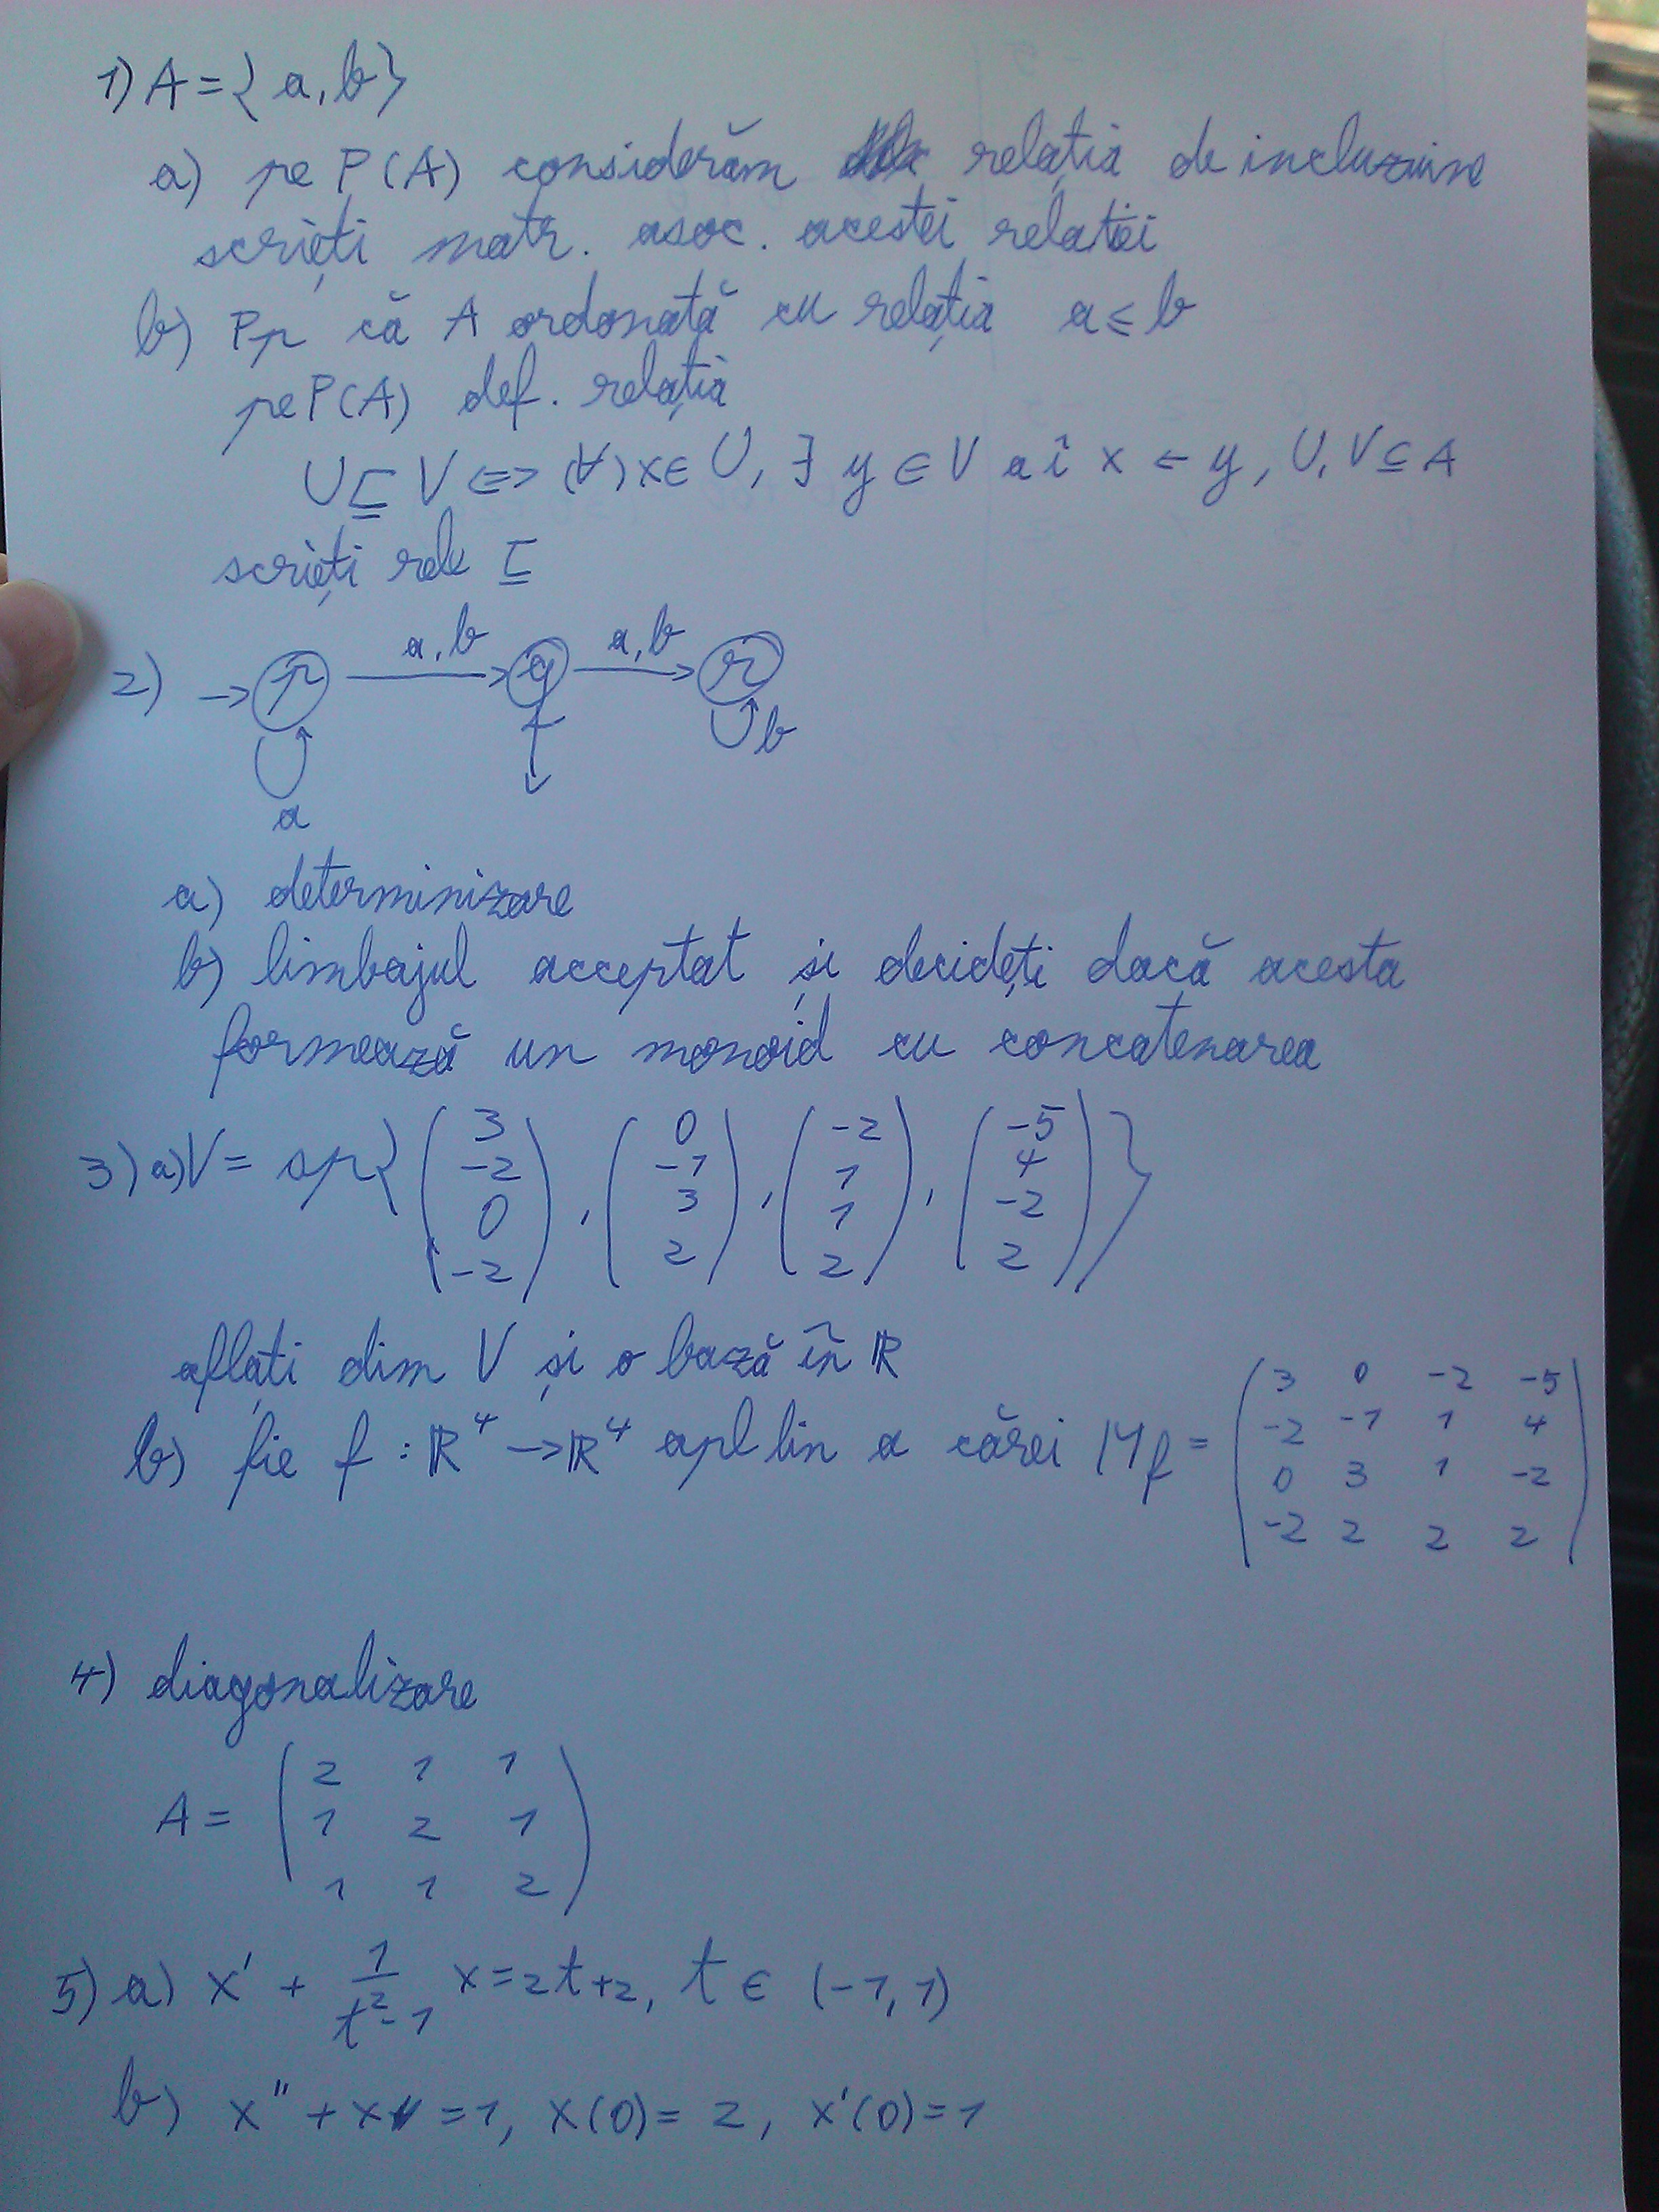 1) A = { a, b }
a) pe P(A) considerăm relația de incluziune
scrieți matr. asoc. acestei relatiei
b) Pp că A ordonată cu relația a ≤ b
pe P(A) def. relația
U ⊑ V ⇔ (∀) x ∈ U, ∃ y ∈ V aî x ≤ y, U, V ⊆ A
scrieți ⊑
2) → p a, b → q a, b → r
b
a
a) determinizare
b) limbajul acceptat și decideți dacă acesta
formează un monoid cu concatenarea
3) a) V = sp{ (3 -2 0 -2), (0 -1 3 2), (-2 1 1 2), (-5 4 -2 2) }
aflați dim V și o bază în ℝ
b) fie f : ℝ⁴ → ℝ⁴ apl lin a cărei M_f =
3 0 -2 -5
-2 -1 1 4
0 3 1 -2
-2 2 2 2
4) diagonalizare
A =
2 1 1
1 2 1
1 1 2
5) a) x' + 1/(t²-1) x = 2t+2, t ∈ (-1, 1)
b) x'' + x = 1, x(0) = 2, x'(0) = 1